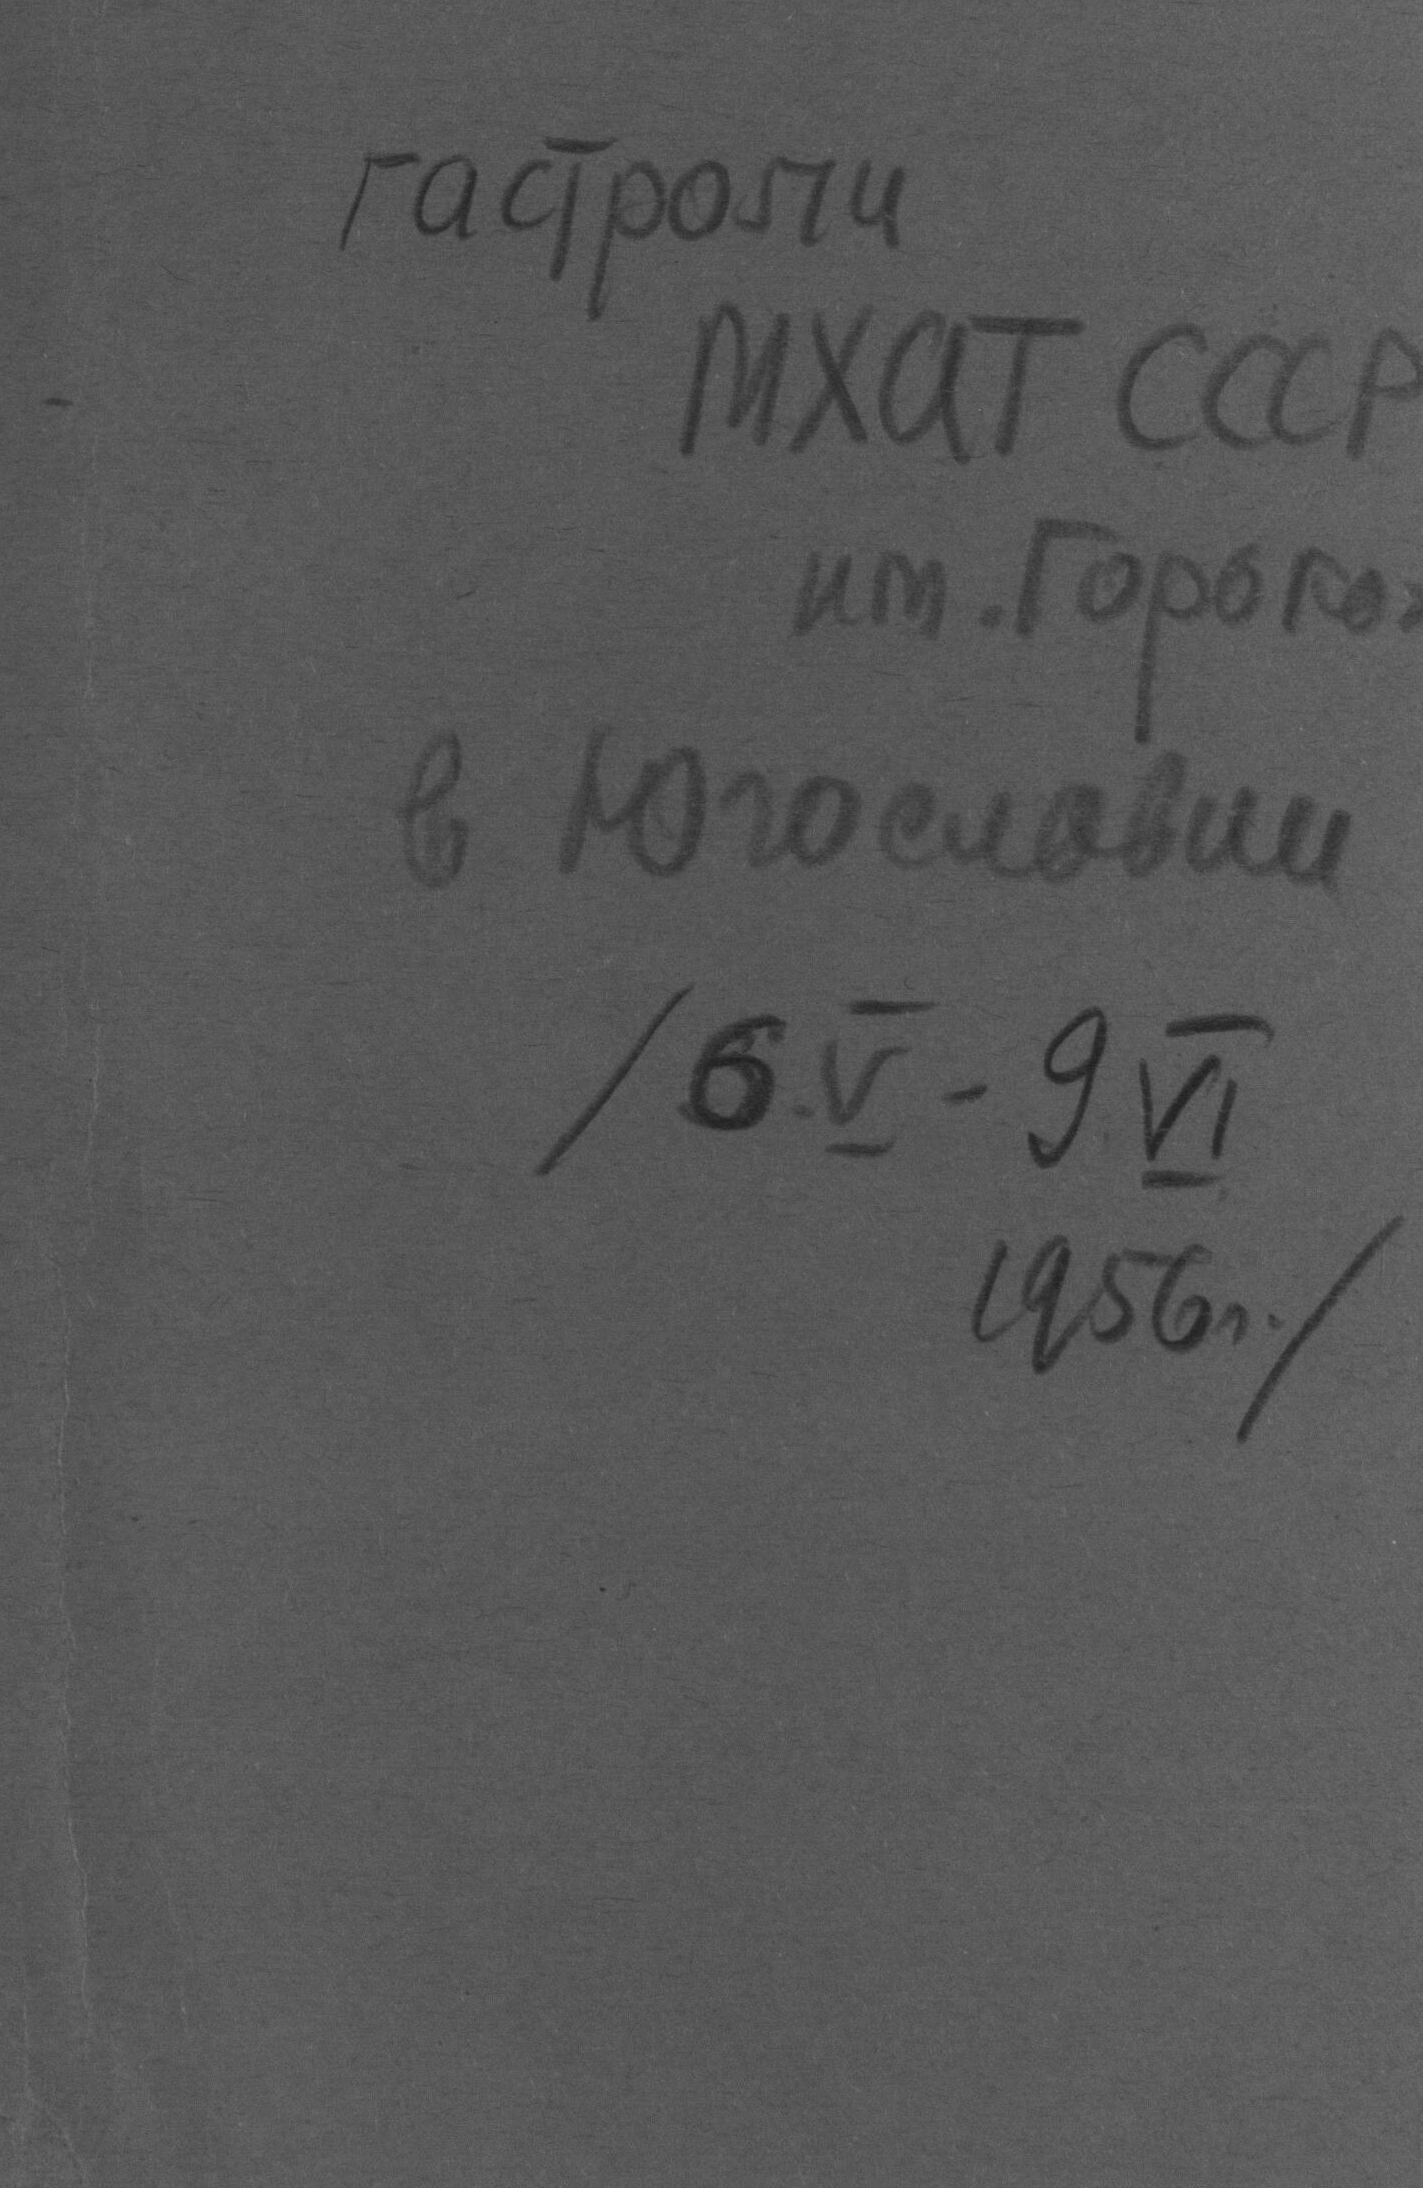 гастроли
МХАТ СССР
им. Горького
в Югославии
/6.V - 9.VI
1956г./